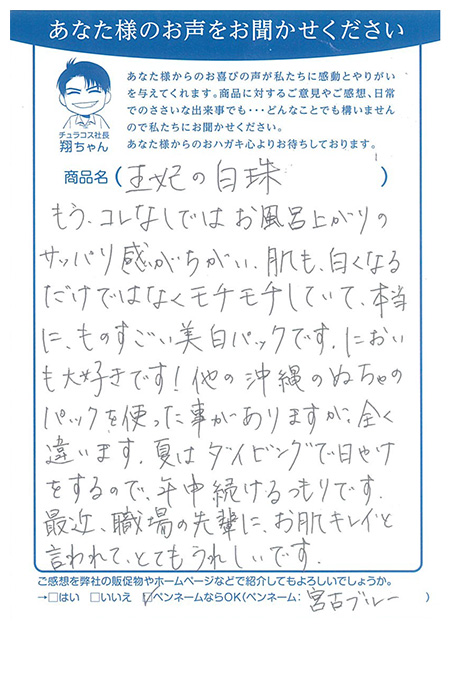 あなた様のお声をお聞かせください
あなた様からのお喜びの声が私たちに感動とやりがい
を与えてくれます。商品に対するご意見やご感想、日常
でのささいな出来事でも・・・どんなことでも構いません
ので私たちにお聞かせください。
あなた様からのおハガキ心よりお待ちしております。
チュラコス社長
翔ちゃん
商品名(王妃の白珠)
もう、コレなしではお風呂上がりの
サッパリ感がちがい、肌も、白くなる
だけではなくモチモチしていて、本当
に、ものすごい美白パックです。におい
も大好きです!他の沖縄のぬちゃの
パックを使った事がありますが、全く
違います。夏はダイビングで日やけ
をするので、年中続けるつもりです。
最近、職場の先輩に、お肌キレイと
言われて、とてもうれしいです。
ご感想を弊社の販促物やホームページなどで紹介してもよろしいでしょうか。
→□はい □いいえ ☑ペンネームならOK(ペンネーム: 宮古ブルー )